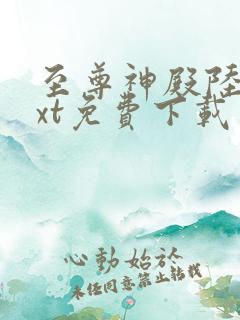 至尊神殿陆
xt免费下载
心动始於
未经同意禁止转载